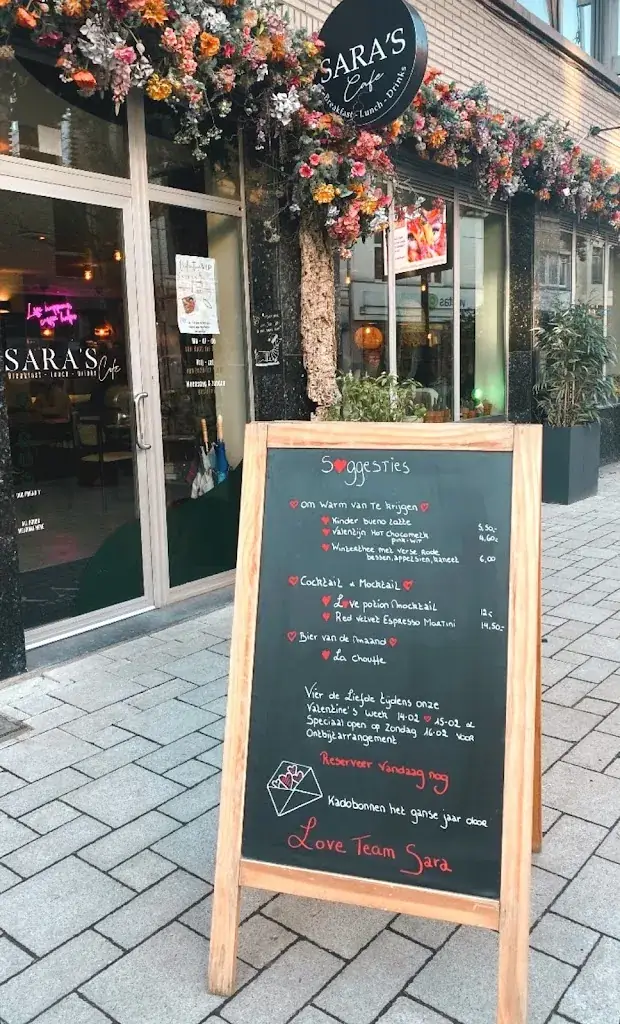 SARA'S
Cafe
Breakfast - Lunch - Drinks
SARA'S Cafe
Breakfast - Lunch - Drinks
Suggesties
Om warm van te krijgen
Kinder bueno latte 5,50,-
Valentijn Hot chocomelk 4,60,-
pink-wit
Winterthee met verse Rode
bessen, appelsien, kaneel 6,00
Cocktail & Mocktail
Love potion Mocktail 12,-
Red velvet Espresso Martini 14.50,-
Bier van de Maand
La Chouffe
Vier de Liefde tijdens onze
Valentine's week 14.02 15.02 &
Speciaal open op Zondag 16.02 voor
Ontbijtarrangement
Reserveer vandaag nog
Kadobonnen het ganse jaar door
Love Team Sara